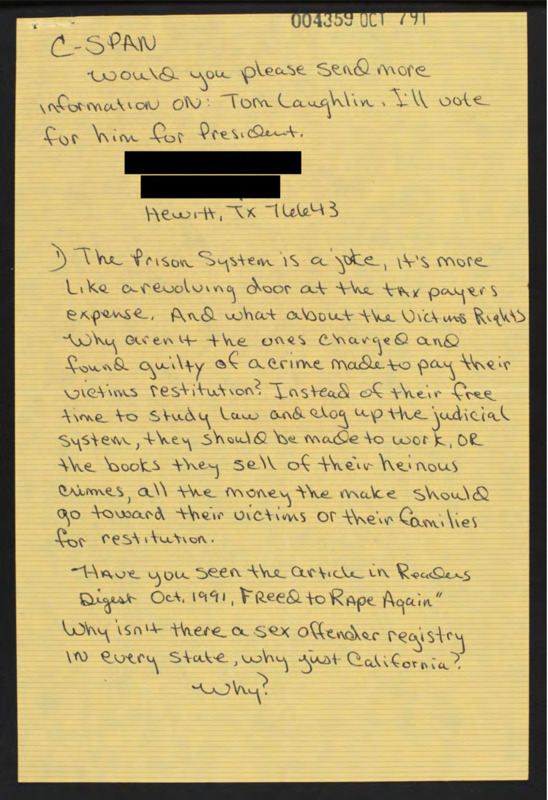 004359 OCT 7 91
C-SPAN
Would you please send more
information on: Tom Laughlin. I'll vote
for him for President.
Hewitt, Tx 76643
1) The Prison System is a joke, it's more
like a revolving door at the tax payers
expense. And what about the Victims Rights
Why aren't the ones charged and
found guilty of a crime made to pay their
victims restitution? Instead of their free
time to study law and clog up the judicial
system, they should be made to work, OR
the books they sell of their heinous
crimes, all the money the make should
go toward their victims or their families
for restitution.
"Have you seen the article in Readers
Digest Oct. 1991, FReed to Rape Again"
Why isn't there a sex offender registry
in every state, why just California?
Why?